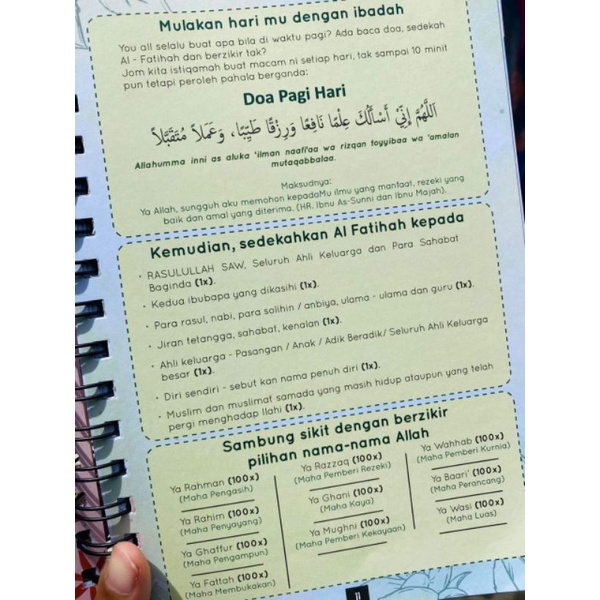 Mulakan hari mu dengan ibadah
You all selalu buat apa bila di waktu pagi? Ada baca doa, sedekah
Al - Fatihah dan berzikir tak?
Jom kita istiqamah buat macam ni setiap hari, tak sampai 10 minit
pun tetapi peroleh pahala berganda:
Doa Pagi Hari
اَللّٰهُمَّ إِنِّيْ أَسْأَلُكَ عِلْمًا نَافِعًا وَرِزْقًا طَيِّبًا، وَعَمَلاً مُتَقَبَّلاً
Allahumma inni as aluka 'ilman naafi'aa wa rizqan toyyibaa wa 'amalan
mutaqabbalaa.
Maksudnya:
Ya Allah, sungguh aku memohon kepadaMu ilmu yang manfaat, rezeki yang
baik dan amal yang diterima. (HR. Ibnu As-Sunni dan Ibnu Majah).
Kemudian, sedekahkan Al Fatihah kepada
• RASULULLAH SAW, Seluruh Ahli Keluarga dan Para Sahabat
Baginda (1x).
• Kedua ibubapa yang dikasihi (1x).
• Para rasul, nabi, para solihin / anbiya, ulama - ulama dan guru (1x).
• Jiran tetangga, sahabat, kenalan (1x).
• Ahli keluarga - Pasangan / Anak / Adik Beradik/ Seluruh Ahli Keluarga
besar (1x).
• Diri sendiri - sebut kan nama penuh diri (1x).
• Muslim dan muslimat samada yang masih hidup ataupun yang telah
pergi menghadap Ilahi (1x).
Sambung sikit dengan berzikir
pilihan nama-nama Allah
Ya Rahman (100x)
(Maha Pengasih)
Ya Rahim (100x)
(Maha Penyayang)
Ya Ghaffur (100x)
(Maha Pengampun)
Ya Fattah (100x)
(Maha Membukakan)
Ya Razzaq (100x)
(Maha Pemberi Rezeki)
Ya Ghani (100x)
(Maha Kaya)
Ya Mughni (100x)
(Maha Pemberi Kekayaan)
Ya Wahhab (100x)
(Maha Pemberi Kurnia)
Ya Baari' (100x)
(Maha Perancang)
Ya Wasi (100x)
(Maha Luas)
11